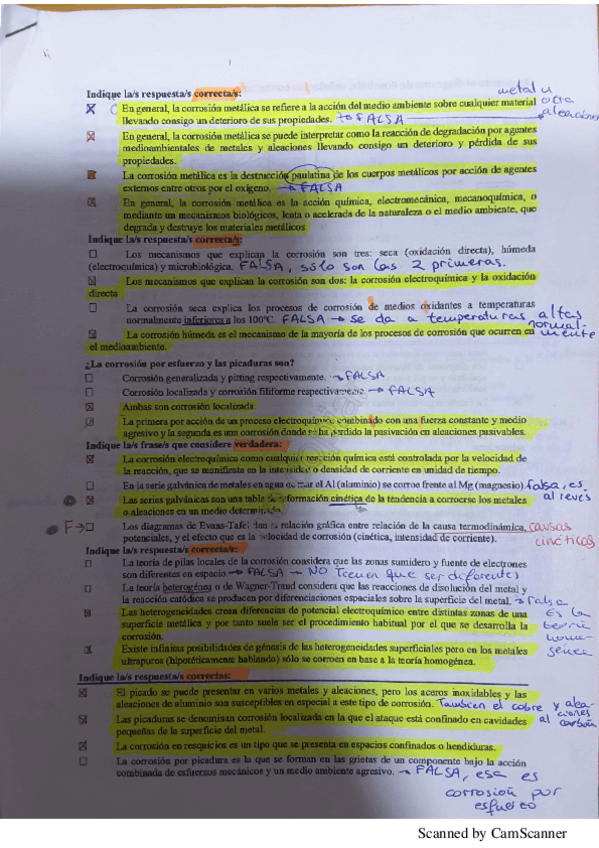 Indique la/s respuesta/s correcta/s:
metal u
En general, la corrosión metálica se refiere a la acción del medio ambiente sobre cualquier material otra
llevando consigo un deterioro de sus propiedades. → FALSA aleación
En general, la corrosión metálica se puede interpretar como la reacción de degradación por agentes
medioambientales de metales y aleaciones llevando consigo un deterioro y pérdida de sus
propiedades.
La corrosión metálica es la destrucción paulatina de los cuerpos metálicos por acción de agentes
externos entre otros por el oxígeno. → FALSA
En general, la corrosión metálica es la acción química, electromecánica, mecanoquímica, o
mediante un mecanismos biológicos, lenta o acelerada de la naturaleza o el medio ambiente, que
degrada y destruye los materiales metálicos
Indique la/s respuesta/s correcta/s:
Los mecanismos que explican la corrosión son tres: seca (oxidación directa), húmeda
(electroquímica) y microbiológica. FALSA, sólo son las 2 primeras.
Los mecanismos que explican la corrosión son dos: la corrosión electroquímica y la oxidación
directa
La corrosión seca explica los procesos de corrosión de medios oxidantes a temperaturas
normalmente inferiores a los 100ºC. FALSA → se da a temperaturas altas
normal-
La corrosión húmeda es el mecanismo de la mayoría de los procesos de corrosión que ocurren en mente
el medioambiente.
¿La corrosión por esfuerzo y las picaduras son?
Corrosión generalizada y pitting respectivamente. → FALSA
Corrosión localizada y corrosión filiforme respectivamente → FALSA
Ambas son corrosión localizada.
La primera por acción de un proceso electroquímico combinado con una fuerza constante y medio
agresivo y la segunda es una corrosión donde se ha perdido la pasivación en aleaciones pasivables.
Indique la/s frase/s que considere verdadera:
La corrosión electroquímica como cualquier reacción química está controlada por la velocidad de
la reacción, que se manifiesta en la intensidad o densidad de corriente en unidad de tiempo.
En la serie galvánica de metales en agua de mar el Al (aluminio) se corroe frente al Mg (magnesio) falsa, es
Las series galvánicas son una tabla de información cinética de la tendencia a corroerse los metales al revés
o aleaciones en un medio determinado.
F→ Los diagramas de Evans-Tafel dan la relación gráfica entre relación de la causa termodinámica, causas
potenciales, y el efecto que es la velocidad de corrosión (cinética, intensidad de corriente). cinéticas
Indique la/s respuesta/s correcta/s:
La teoría de pilas locales de la corrosión considera que las zonas sumidero y fuente de electrones
son diferentes en espacio → FALSA → NO tienen que ser diferentes
La teoría heterogénea o de Wagner-Traud considera que las reacciones de disolución del metal y
la reacción catódica se producen por diferenciaciones espaciales sobre la superficie del metal. → falsa
Las heterogeneidades crean diferencias de potencial electroquímico entre distintas zonas de una es la
superficie metálica y por tanto suele ser el procedimiento habitual por el que se desarrolla la teoría
corrosión. homo-
Existe infinitas posibilidades de génesis de las heterogeneidades superficiales pero en los metales génea
ultrapuros (hipotéticamente hablando) sólo se corroen en base a la teoría homogénea.
Indique la/s respuesta/s correctas:
El picado se puede presentar en varios metales y aleaciones, pero los aceros inoxidables y las
aleaciones de aluminio son susceptibles en especial a este tipo de corrosión. Tambien el cobre y alea-
ciones
Las picaduras se denominan corrosión localizada en la que el ataque está confinado en cavidades al carbón
pequeñas de la superficie del metal.
La corrosión en resquicios es un tipo que se presenta en espacios confinados o hendiduras.
La corrosión por picadura es la que se forman en las grietas de un componente bajo la acción
combinada de esfuerzos mecánicos y un medio ambiente agresivo. → FALSA, esa es
corrosión por
esfuerzo
Scanned by CamScanner